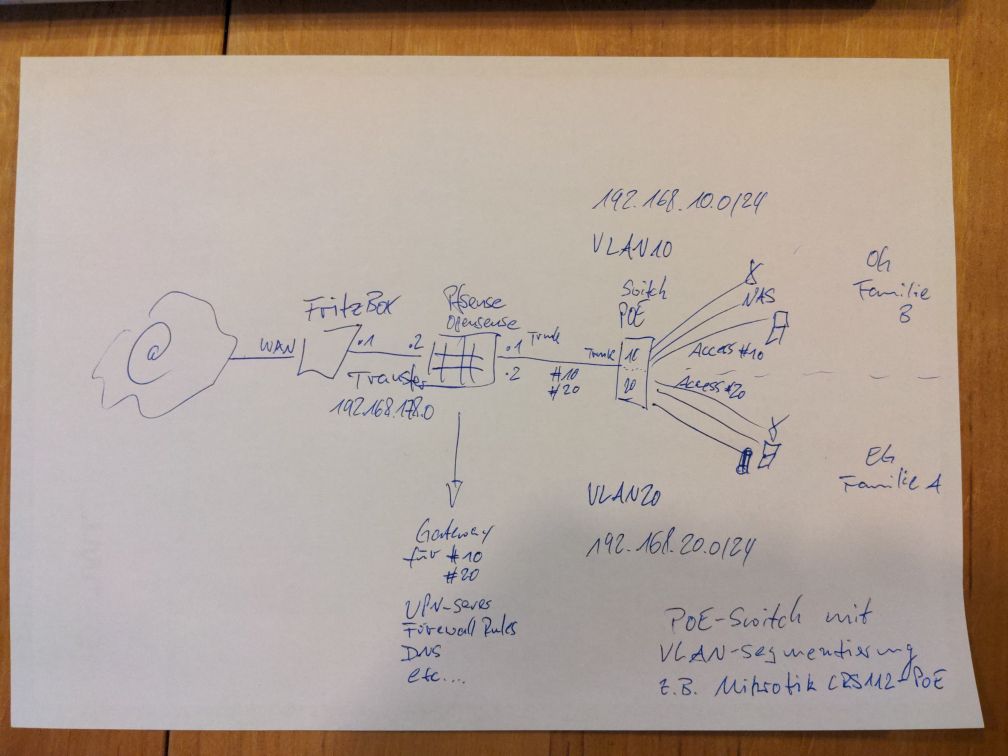 192.168.10.0/24
VLAN10
OG
Familie
B
FritzBox
Pfsense
Opensense
Switch
POE
NAS
@
WAN
.1
.2
.1
Trunk
Trunk
10
Access #10
Transfer
.2
#10
#20
20
Access #20
192.168.178.0
EG
Familie A
VLAN20
192.168.20.0/24
Gateway
für #10
#20
VPN-Server
Firewall Rules
DNS
etc....
PoE-Switch mit
VLAN-Segmentierung
z.B. Mikrotik CRS112-PoE